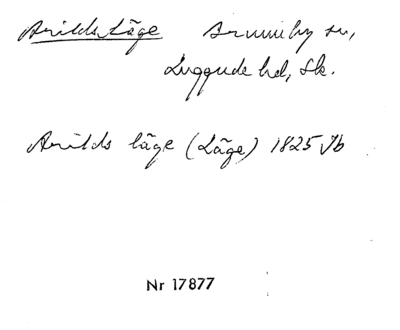 Arilds Läge Brunnby sn,
Luggude hd, Sk.
Arilds läge (Läge) 1825 Jb
Nr 17877